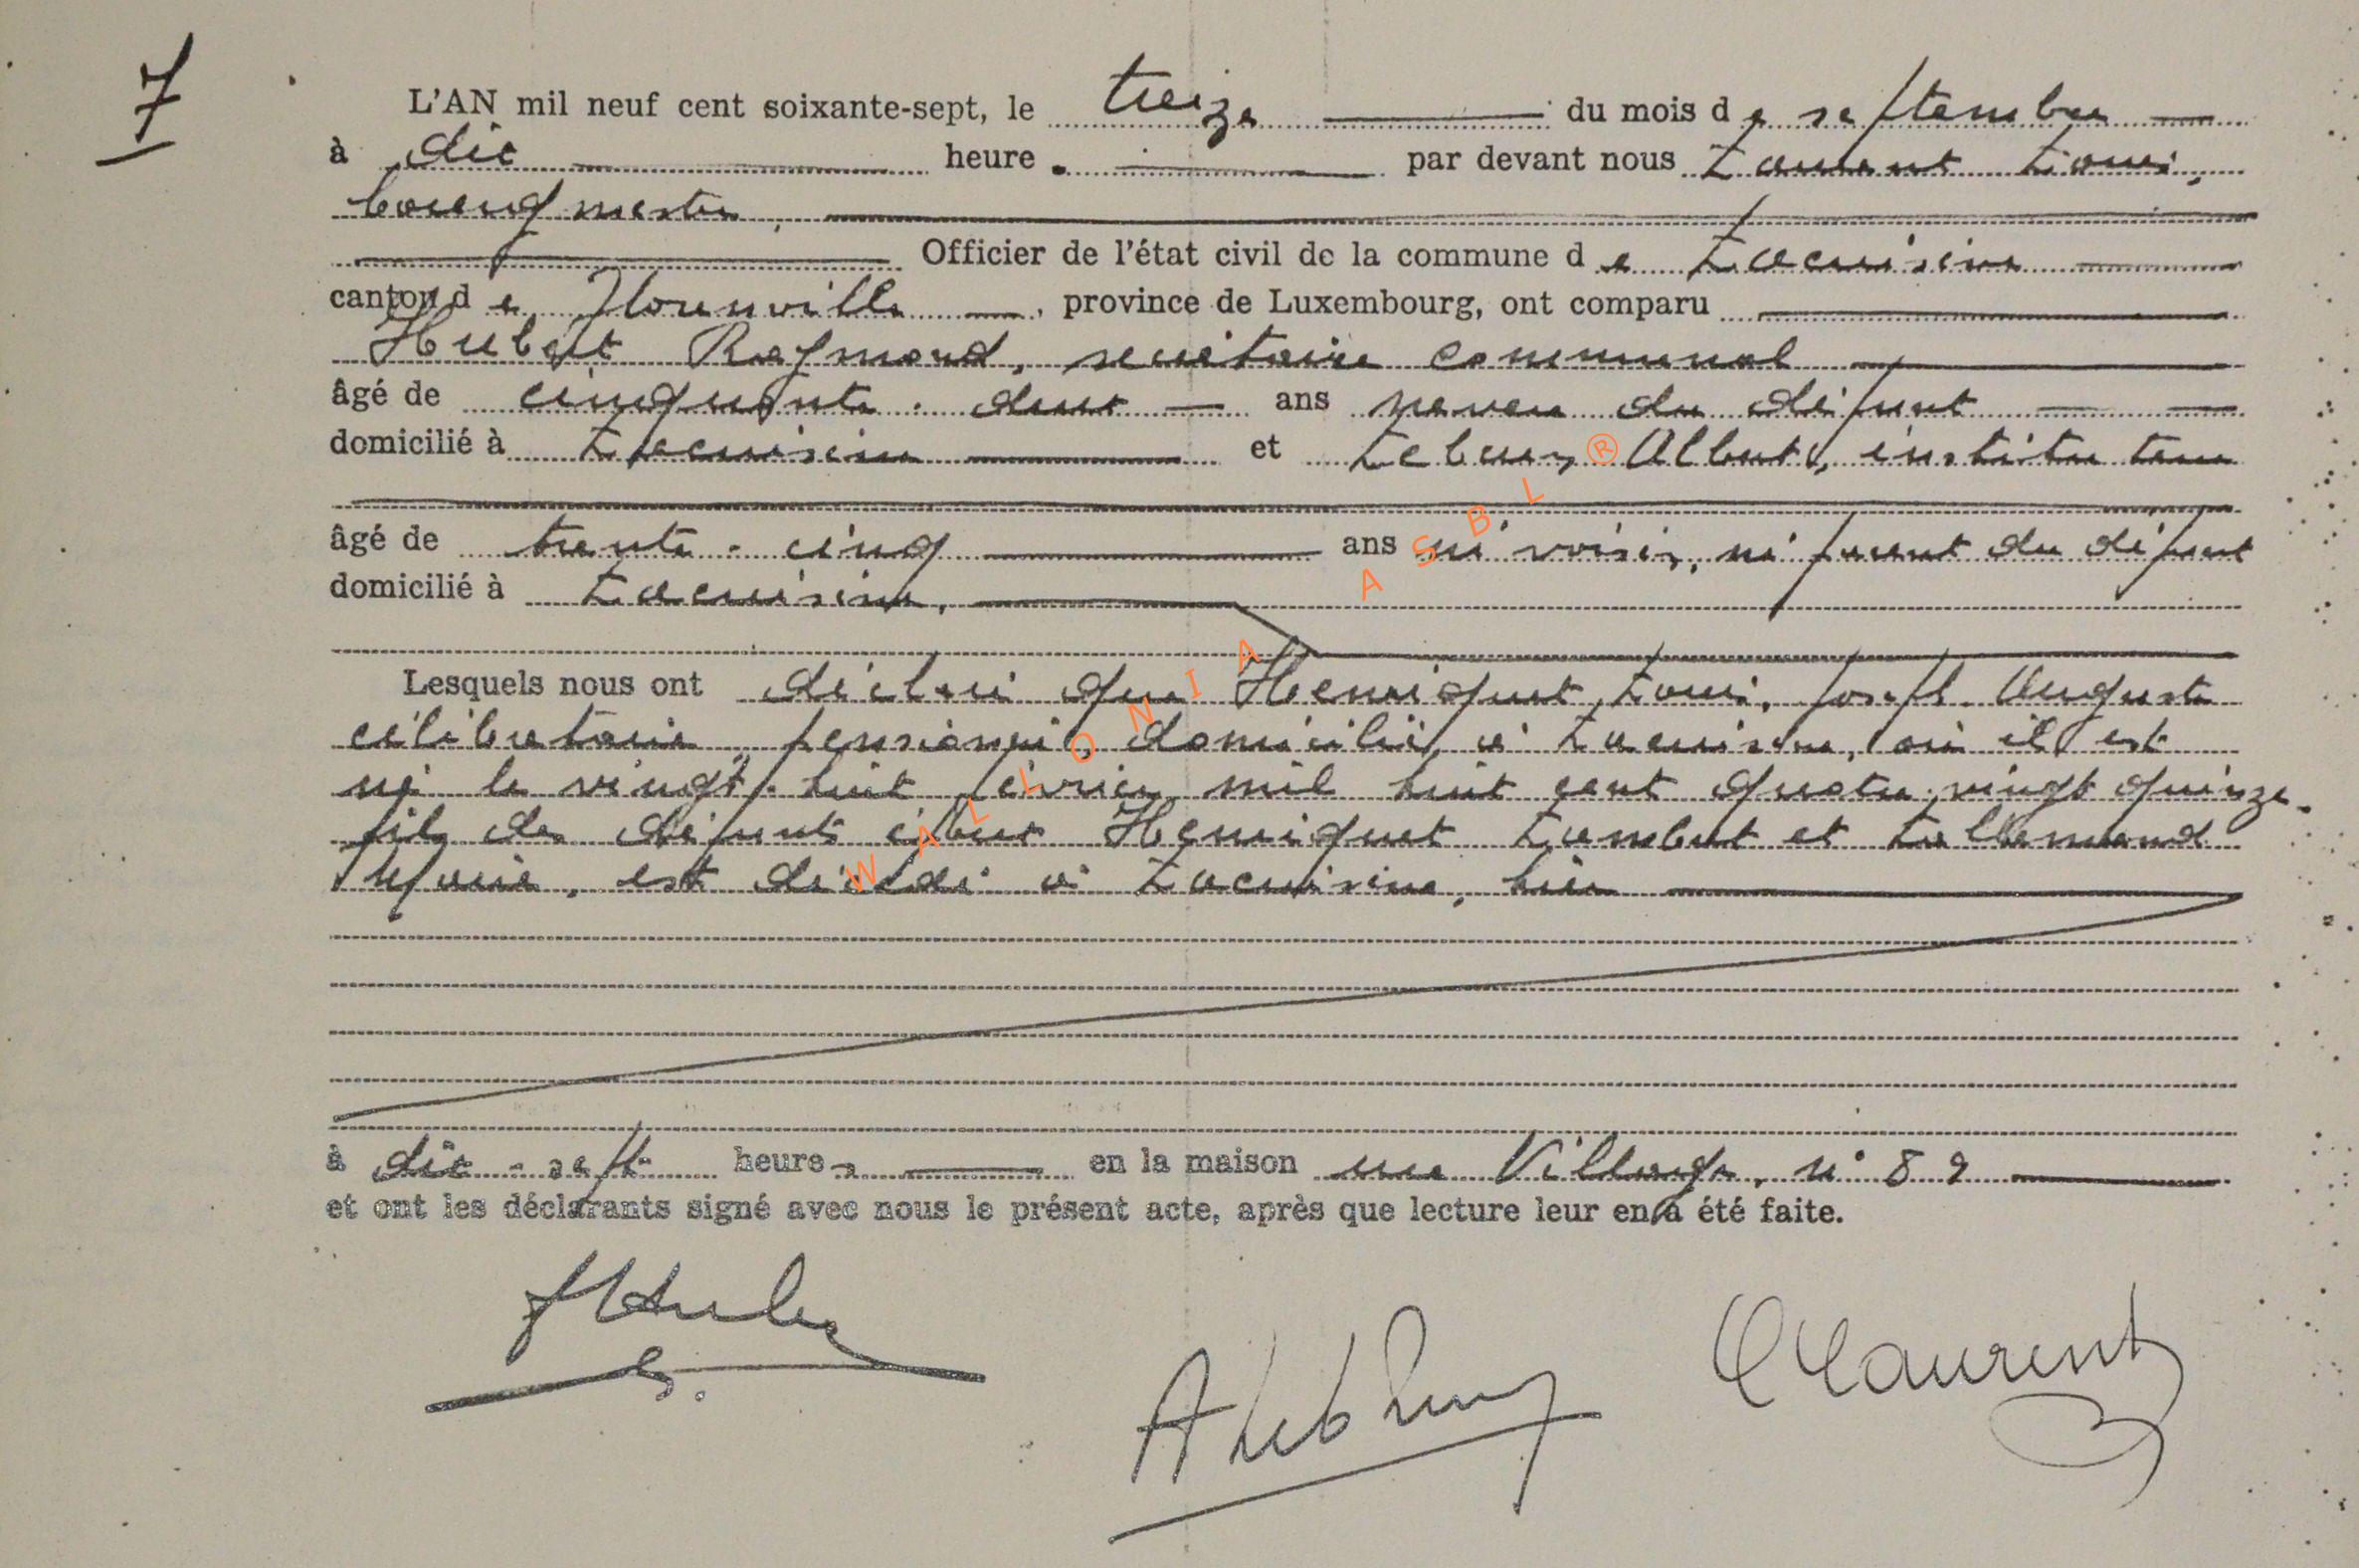 7
L'AN mil neuf cent soixante-sept, le treize du mois de septembre
à dix heure. par devant nous Laurent Louis,
bourgmestre,
Officier de l'état civil de la commune de Lacuisine
canton de Florenville, province de Luxembourg, ont comparu
Hubert Raymond, secrétaire communal
âgé de cinquante-deux ans neveu du défunt
domicilié à Lacuisine et Lebrun Albert, instituteur
âgé de trente-cinq ans ni voisin, ni parent du défunt
domicilié à Lacuisine,
Lesquels nous ont déclaré que Henriquet, Louis, Joseph Auguste
célibataire, pensionné, domicilié à Lacuisine, où il est
né le vingt-huit février mil huit cent quatre-vingt quinze,
fils des défunts époux Henriquet Lambert et Lallemand
Marie, est décédé à Lacuisine, hier
à dix-sept heures en la maison rue Village, n° 89
et ont les déclarants signé avec nous le présent acte, après que lecture leur en a été faite.
A Lebrun
L Laurent
WALLONIA ASBL ®